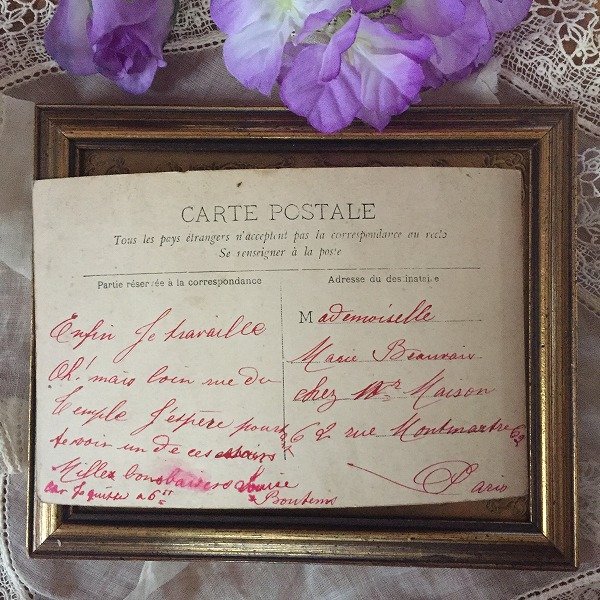 CARTE POSTALE
Tous les pays étrangers n'acceptent pas la correspondance au recto
Se renseigner à la poste
Partie réservée à la correspondance
Adresse du destinataire
Enfin Je travaille
Oh! mais loin rue du
Temple J'espère pouvoir
te voir un de ces soirs
Milles bons baisers Louise
car je quitte a 6
Boutems
Mademoiselle
Marie Beauvais
chez Mr Maison
62 rue Montmartre 62
Paris